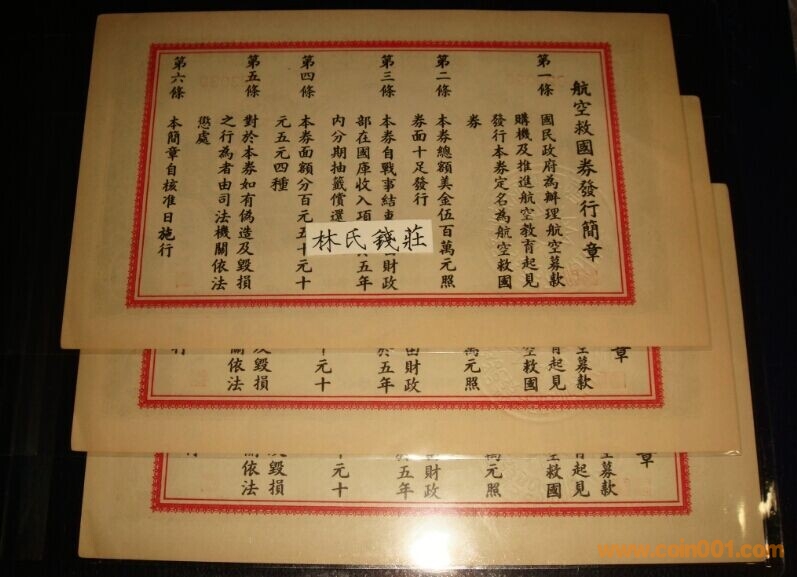 航空救國券發行簡章
第一條 國民政府為辦理航空募款
購機及推進航空教育起見
發行本券定名為航空救國
券
第二條 本券總額美金伍百萬元照
券面十足發行
第三條 本券自戰事結束
財政
部在國庫收入項
五年
內分期抽籤償還
第四條 本券面額分百元五十元十
元五元四種
第五條 對於本券如有偽造及毀損
之行為者由司法機關依法
懲處
第六條 本簡章自核准日施行
林氏錢莊
章
募款
育起見
空救國
萬元照
由財政
於五年
元十
毀損
關依法
行
章
募款
育起見
救國
元照
財政
五年
元十
毀損
依法
www.coin001.com